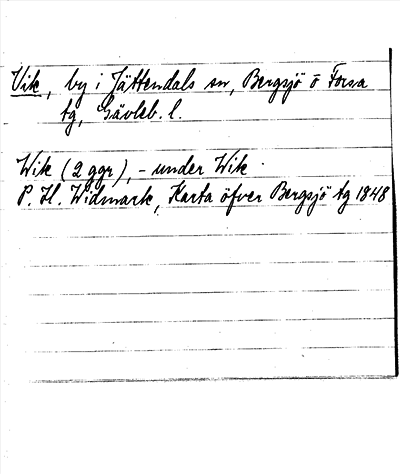 Vik, by i Jättendals sn, Bergsjö o Forsa
tg, Gävleb. l.
Wik (2 ggr), - under Wik
P. H. Widmark, Karta öfver Bergsjö tg 1848